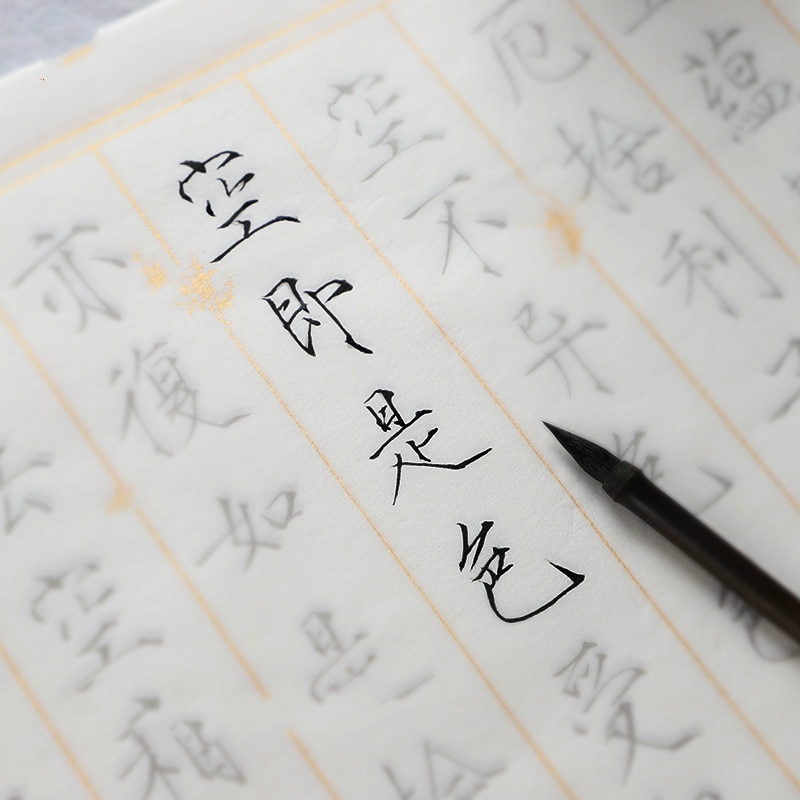 蘊
厄捨利子
空不异色
空即是色受
亦復如是捨
空相